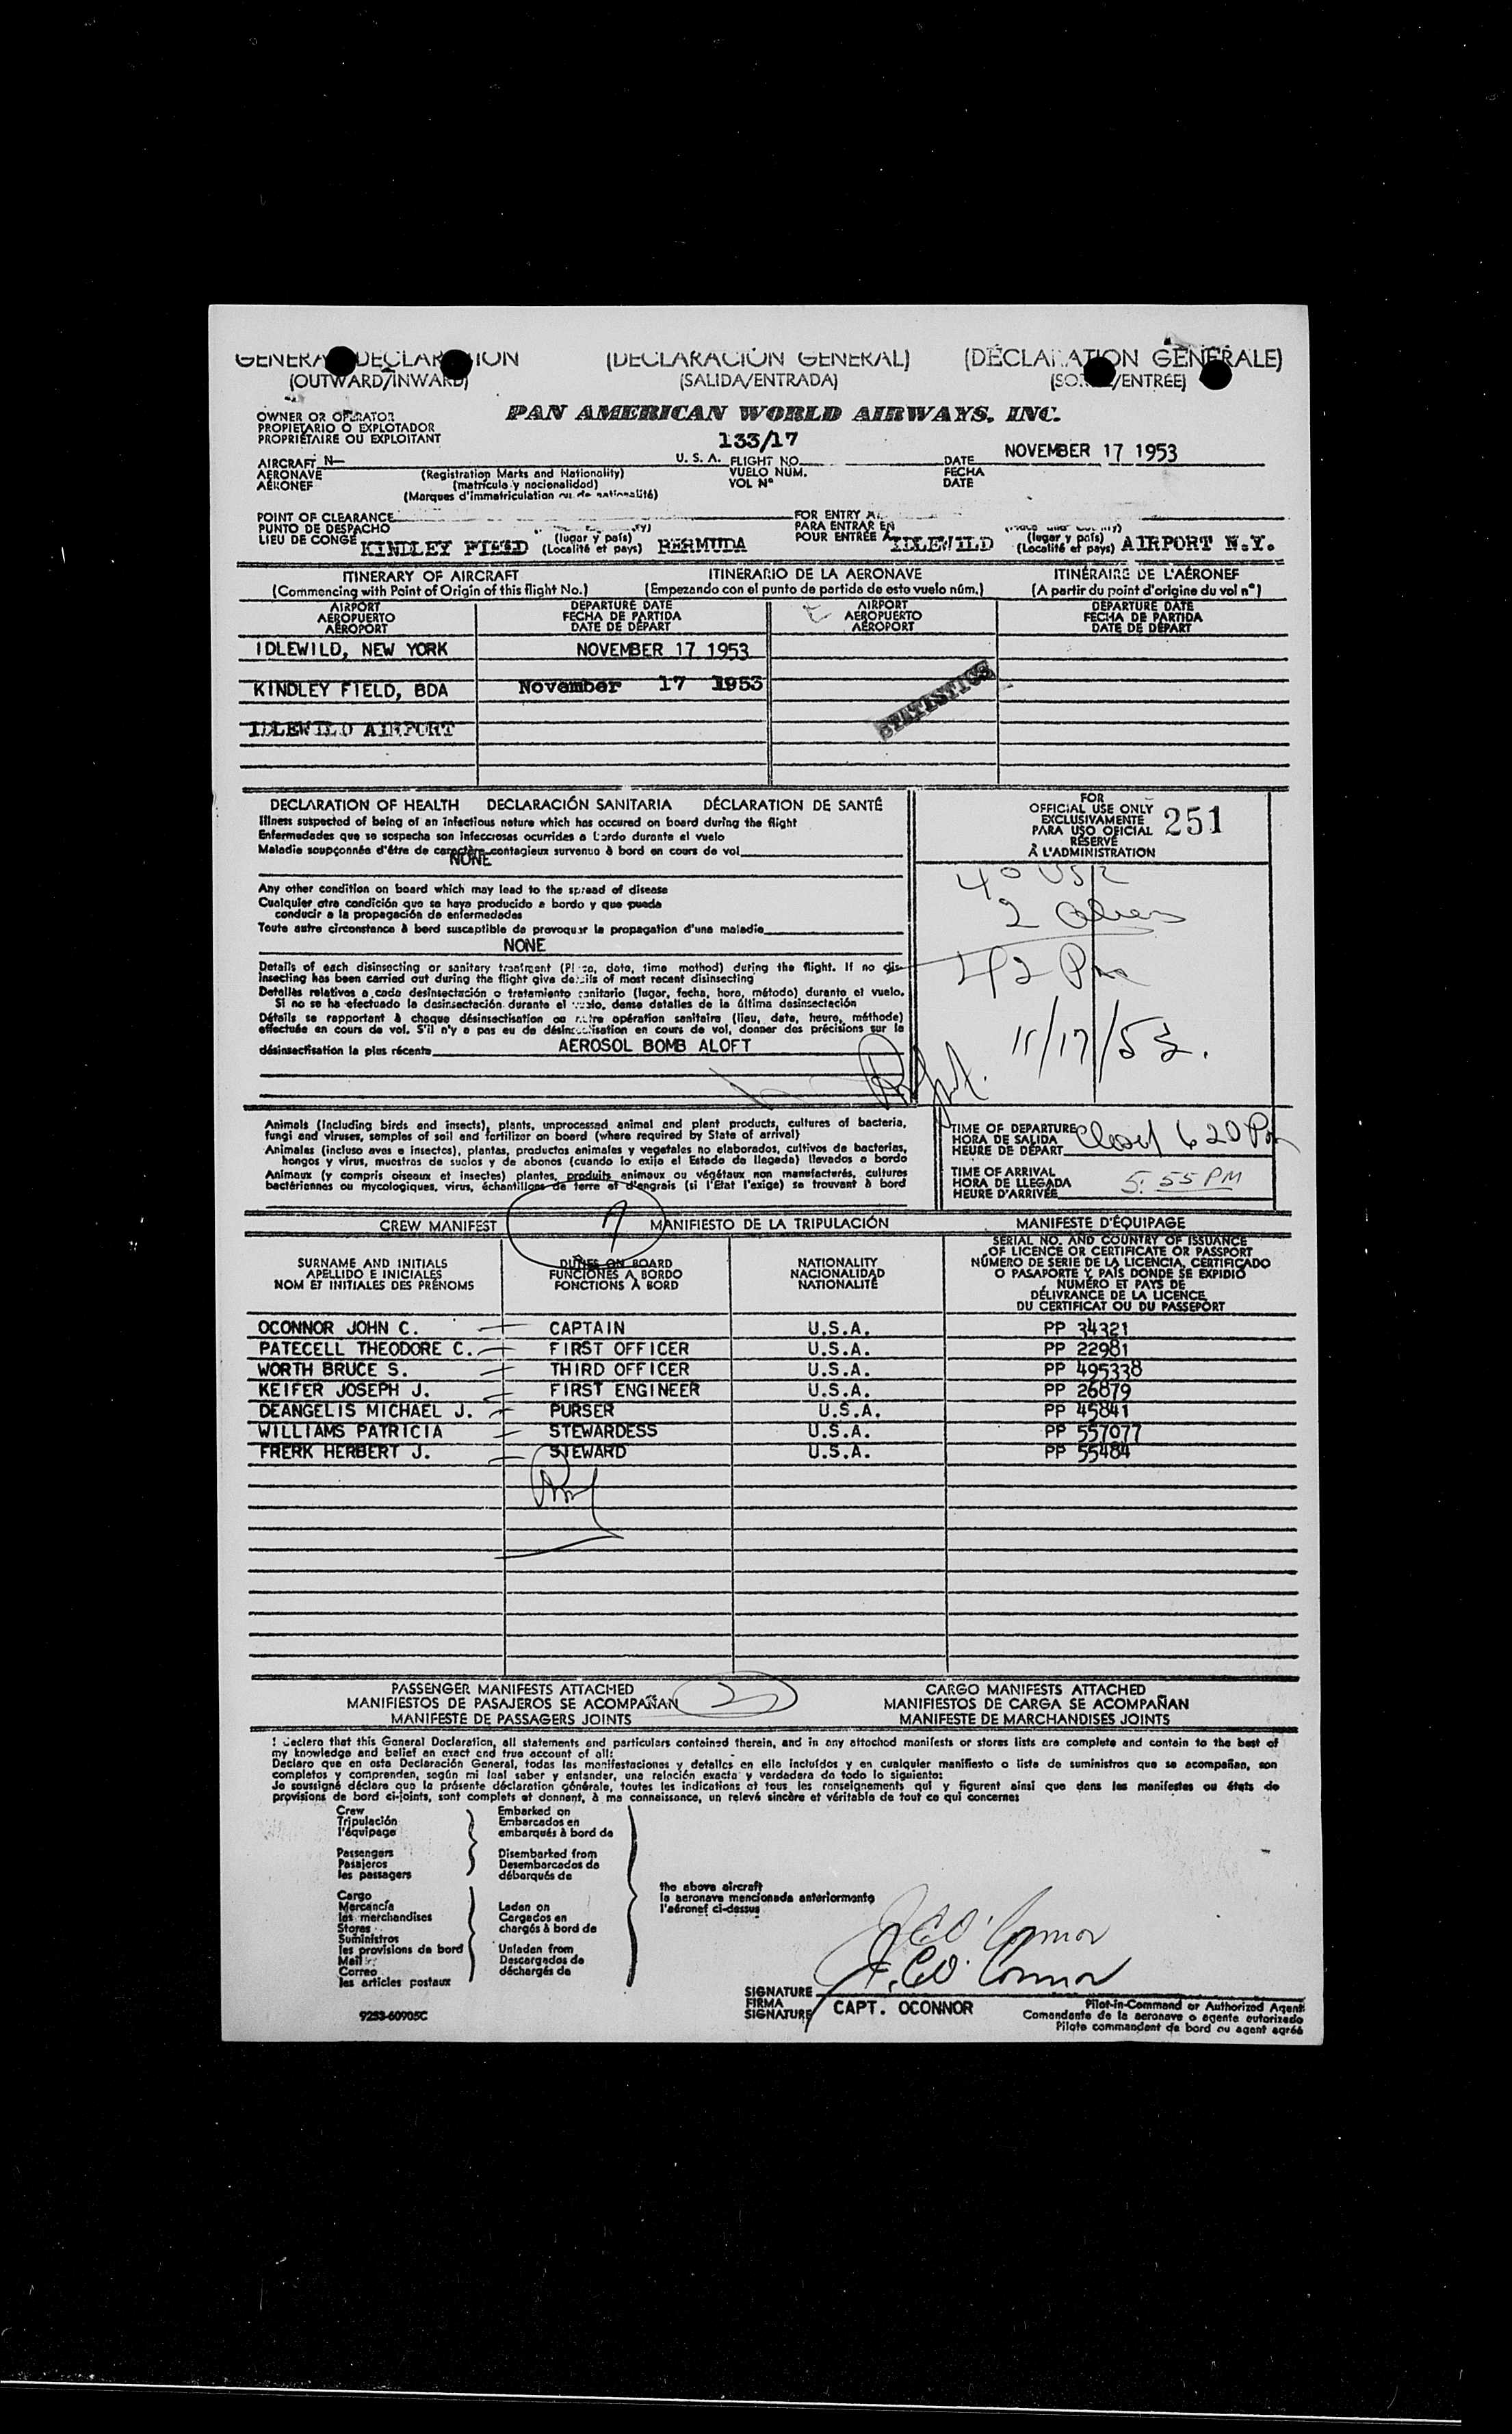 GENERAL DECLARATION (DECLARACIÓN GENERAL) (DÉCLARATION GÉNÉRALE)
(OUTWARD/INWARD) (SALIDA/ENTRADA) (SORTIE/ENTRÉE)
OWNER OR OPERATOR
PROPIETARIO O EXPLOTADOR
PROPRIÉTAIRE OU EXPLOITANT
PAN AMERICAN WORLD AIRWAYS, INC.
133/17
AIRCRAFT N— U. S. A. FLIGHT NO. DATE NOVEMBER 17 1953
AERONAVE (Registration Marks and Nationality) VUELO NUM. FECHA
AÉRONEF (matrícula y nacionalidad) VOL Nº DATE
(Marques d'immatriculation et de nationalité)
POINT OF CLEARANCE FOR ENTRY AT
PUNTO DE DESPACHO PARA ENTRAR EN
LIEU DE CONGÉ KINDLEY FIELD (lugar y país) (Localité et pays) BERMUDA POUR ENTRÉE À IDLEWILD (lugar y país) (Localité et pays) AIRPORT N.Y.
ITINERARY OF AIRCRAFT ITINERARIO DE LA AERONAVE ITINÉRAIRE DE L'AÉRONEF
(Commencing with Point of Origin of this flight No.) (Empezando con el punto de partida de esto vuelo núm.) (A partir du point d'origine du vol nº)
AIRPORT DEPARTURE DATE AIRPORT DEPARTURE DATE
AEROPUERTO FECHA DE PARTIDA AEROPUERTO FECHA DE PARTIDA
AÉROPORT DATE DE DÉPART AÉROPORT DATE DE DÉPART
IDLEWILD, NEW YORK NOVEMBER 17 1953
KINDLEY FIELD, BDA November 17 1953
STATISTICS
IDLEWILD AIRPORT
DECLARATION OF HEALTH DECLARACIÓN SANITARIA DÉCLARATION DE SANTÉ
Illness suspected of being of an infectious nature which has occured on board during the flight
Enfermedades que se sospecha son infecciosas ocurridas a bordo durante el vuelo
Maladie soupçonnée d'être de caractère contagieux survenue à bord en cours de vol
NONE
Any other condition on board which may lead to the spread of disease
Cualquier otra condición que se haya producido a bordo y que pueda
conducir a la propagación de enfermedades
Toute autre circonstance à bord susceptible de provoquer la propagation d'une maladie
NONE
Details of each disinsecting or sanitary treatment (Place, date, time method) during the flight. If no dis-
insecting has been carried out during the flight give details of most recent disinsecting
Detalles relativos a cada desinsectación o tratamiento sanitario (lugar, fecha, hora, método) durante el vuelo.
Si no se ha efectuado la desinsectación durante el vuelo, dense detalles de la última desinsectación
Détails se rapportant à chaque désinsectisation ou autre opération sanitaire (lieu, date, heure, méthode)
effectuée en cours de vol. S'il n'y a pas eu de désinsectisation en cours de vol, donner des précisions sur la
désinsectisation la plus récente AEROSOL BOMB ALOFT
FOR
OFFICIAL USE ONLY
EXCLUSIVAMENTE
PARA USO OFICIAL
RÉSERVÉ
À L'ADMINISTRATION
251
40 USC
2 Aliens
42 Pm
11/17/53.
Animals (including birds and insects), plants, unprocessed animal and plant products, cultures of bacteria,
fungi and viruses, samples of soil and fertilizer on board (where required by State of arrival)
Animales (incluso aves e insectos), plantas, productos animales y vegetales no elaborados, cultivos de bacterias,
hongos y virus, muestras de suelos y de abonos (cuando lo exija el Estado de llegada) llevados a bordo
Animaux (y compris oiseaux et insectes) plantes, produits animaux ou végétaux non manufacturés, cultures
bactériennes ou mycologiques, virus, échantillons de terre et d'engrais (si l'Etat l'exige) se trouvant à bord
TIME OF DEPARTURE
HORA DE SALIDA
HEURE DE DÉPART
Closed 6 20 Pm
TIME OF ARRIVAL
HORA DE LLEGADA
HEURE D'ARRIVÉE
5:55 PM
CREW MANIFEST 7 MANIFIESTO DE LA TRIPULACIÓN MANIFESTE D'ÉQUIPAGE
SURNAME AND INITIALS
APELLIDO E INICIALES
NOM ET INITIALES DES PRÉNOMS
DUTIES ON BOARD
FUNCIONES A BORDO
FONCTIONS À BORD
NATIONALITY
NACIONALIDAD
NATIONALITÉ
SERIAL NO. AND COUNTRY OF ISSUANCE
OF LICENCE OR CERTIFICATE OR PASSPORT
NÚMERO DE SERIE DE LA LICENCIA, CERTIFICADO
O PASAPORTE Y PAÍS DONDE SE EXPIDIÓ
NUMÉRO ET PAYS DE
DÉLIVRANCE DE LA LICENCE
DU CERTIFICAT OU DU PASSEPORT
OCONNOR JOHN C. CAPTAIN U.S.A. PP 34321
PATECELL THEODORE C. FIRST OFFICER U.S.A. PP 22981
WORTH BRUCE S. THIRD OFFICER U.S.A. PP 495338
KEIFER JOSEPH J. FIRST ENGINEER U.S.A. PP 26879
DEANGELIS MICHAEL J. PURSER U.S.A. PP 45841
WILLIAMS PATRICIA STEWARDESS U.S.A. PP 557077
FRERK HERBERT J. STEWARD U.S.A. PP 55484
PASSENGER MANIFESTS ATTACHED CARGO MANIFESTS ATTACHED
MANIFIESTOS DE PASAJEROS SE ACOMPAÑAN 2 MANIFIESTOS DE CARGA SE ACOMPAÑAN
MANIFESTE DE PASSAGERS JOINTS MANIFESTE DE MARCHANDISES JOINTS
I declare that this General Declaration, all statements and particulars contained therein, and in any attached manifests or stores lists are complete and contain to the best of
my knowledge and belief an exact and true account of all:
Declaro que en esta Declaración General, todas las manifestaciones y detalles en ella incluídos y en cualquier manifiesto o lista de suministros que se acompañan, son
completos y comprenden, según mi leal saber y entender, una relación exacta y verdadera de todo lo siguiente:
Je soussigné déclare que la présente déclaration générale, toutes les indications et tous les renseignements qui y figurent ainsi que dans les manifestes ou états de
provisions de bord ci-joints, sont complets et donnent, à ma connaissance, un relevé sincère et véritable de tout ce qui concerne:
Crew Embarked on
Tripulación Embarcados en
l'équipage embarqués à bord de
Passengers Disembarked from
Pasajeros Desembarcados de
les passagers débarqués de
Cargo
Mercancía Laden on
les marchandises Cargados en
Stores chargés à bord de
Suministros
les provisions de bord Unladen from
Mail Descargados de
Correo déchargés de
les articles postaux
the above aircraft
la aeronave mencionada anteriormente
l'aéronef ci-dessus
J C O'Connor
J. C. O'Connor
SIGNATURE
FIRMA
SIGNATURE
CAPT. OCONNOR
Pilot-in-Command or Authorized Agent
Comandante de la aeronave o agente autorizado
Pilote commandant de bord ou agent agréé
9253-60905C